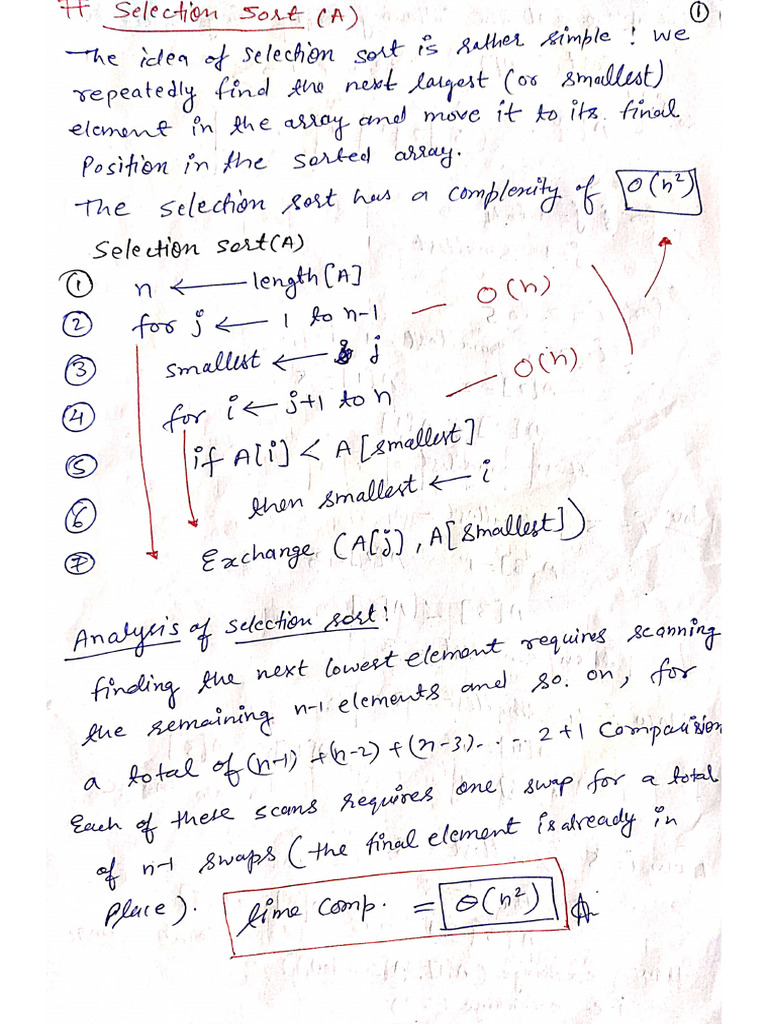 # Selection Sort (A) ①
The idea of selection sort is rather simple! we
repeatedly find the next largest (or smallest)
element in the array and move it to its final
Position in the sorted array.
The selection sort has a complexity of O(n²)
Selection sort(A)
① n ← length[A]
② for j ← 1 to n-1 — O(n)
③ smallest ← j
④ for i ← j+1 to n — O(n)
⑤ if A[i] < A[smallest]
⑥ then smallest ← i
⑦ Exchange (A[j], A[smallest])
Analysis of selection sort:
finding the next lowest element requires scanning
the remaining n-1 elements and so. on, for
a total of (n-1) +(n-2) +(n-3)- . . - 2+1 Comparision
Each of these scans requires one swap for a total
of n-1 swaps (the final element is already in
place). time comp. = Θ(n²)